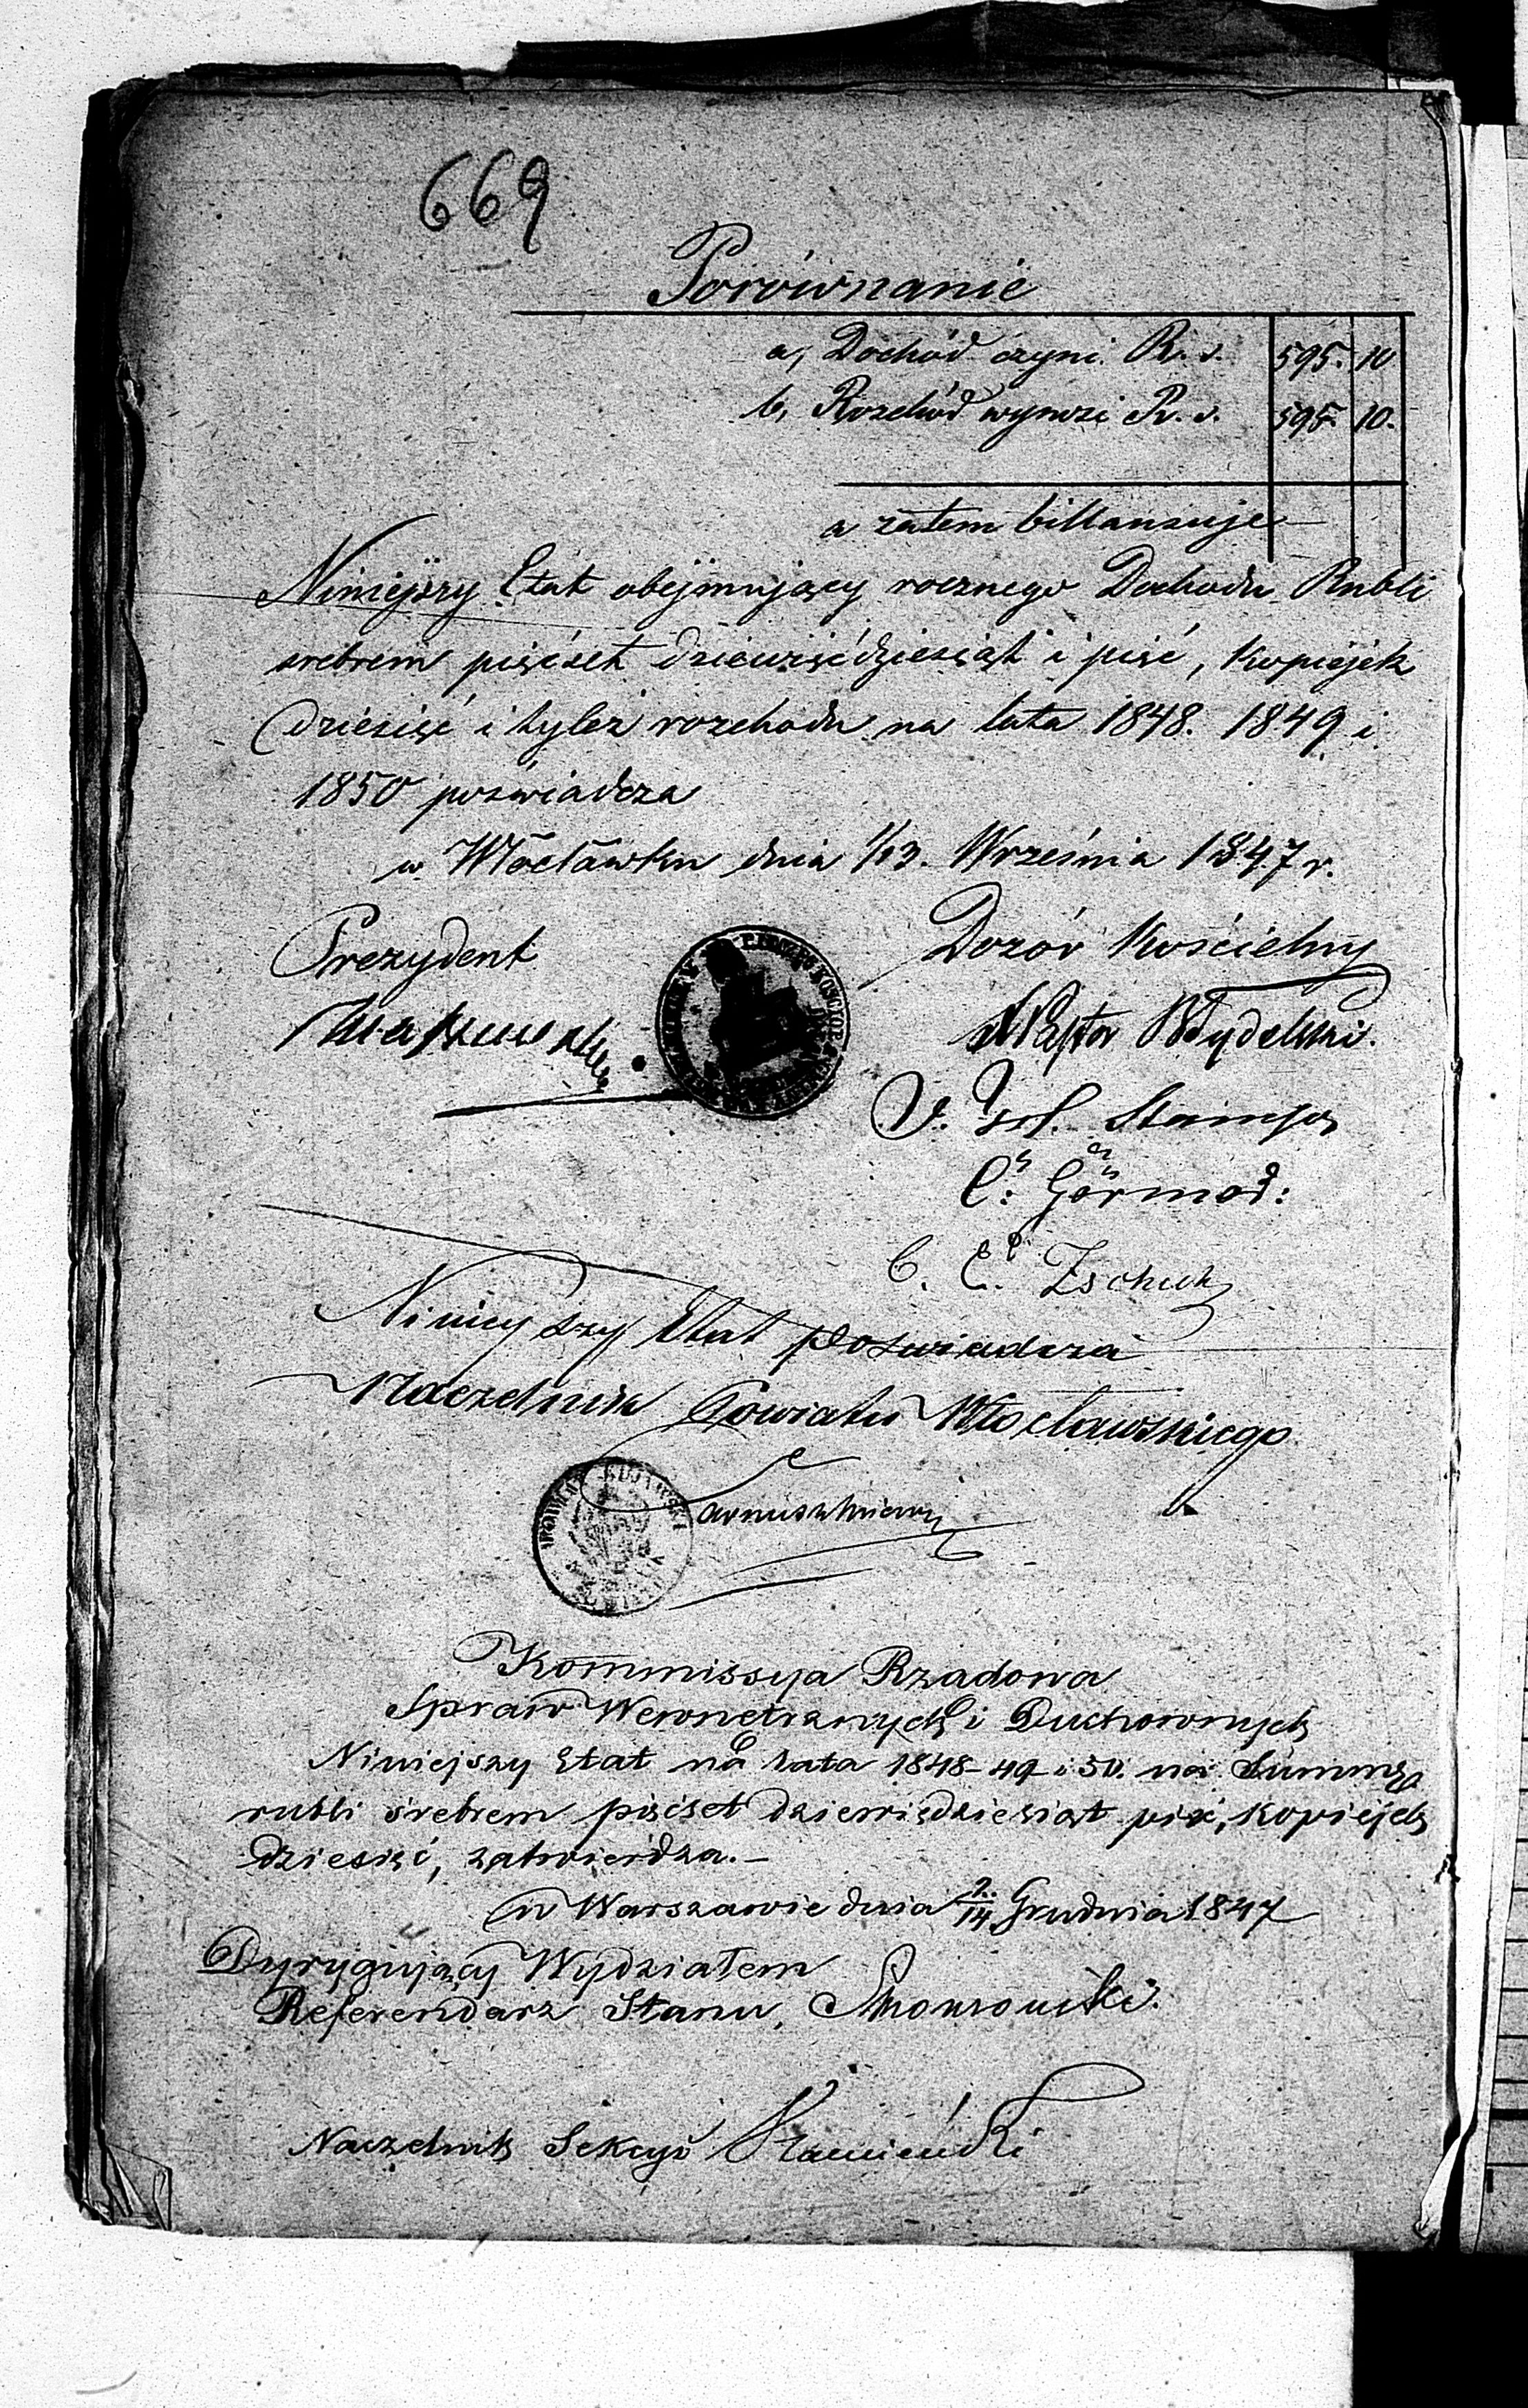 669
Porównanie
a, Dochód czyni R. s. 595. 10
b, Rozchód wynosi R. s. 595. 10.
a zatem billansuje —
Niniejszy Etat obejmujący rocznego Dochodu Rubli
srebrem pięćset dziewięćdziesiąt i pięć, kopiejek
dziesięć i tyleż rozchodu na lata 1848. 1849 i
1850 poświadcza
w Włocławku dnia 1/13. Września 1847 r.
Prezydent
Dozór Kościelny
Pastor
C. Görmod:
C. E. Zschuk
Niniejszy Etat poswiadcza
Naczelnik Powiatu Włocławskiego
Kommissya Rządowa
Spraw Wewnetrznych i Duchownych
Niniejszy Etat na lata 1848-49 i 50. na Summę
rubli srebrem pięćset dziewięćdziesiąt pięć, kopiejek
dziesięć, zatwierdza. —
w Warszawie dnia 2/14 Grudnia 1847
Dyrygujący Wydziałem
Referendarz Stanu,
Naczelnik Sekcyi